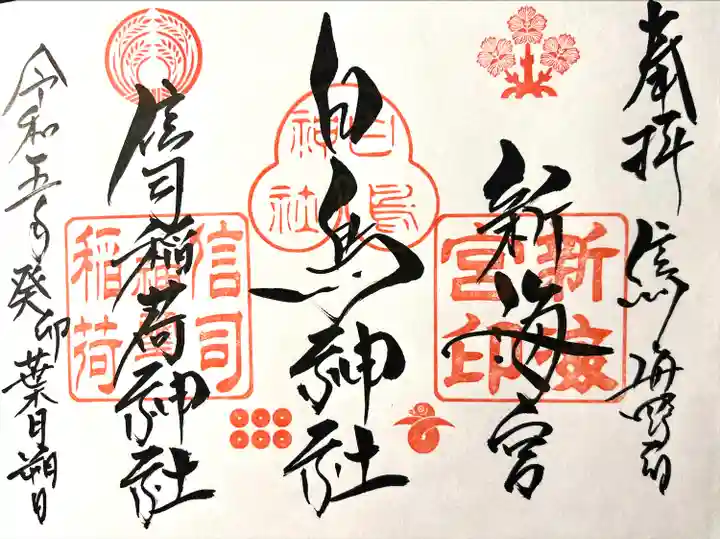 奉拝 信州海野宿
新海宮
新海宮印
白鳥神社
白鳥神社
信司稲荷神社
信司
稲荷
令和五年癸卯葉月朔日